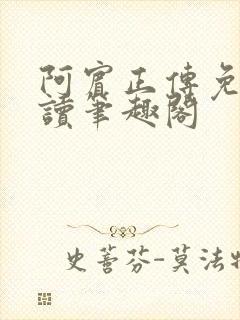 阿賓正傳免
讀筆趣閣
史蒈芬-莫法特